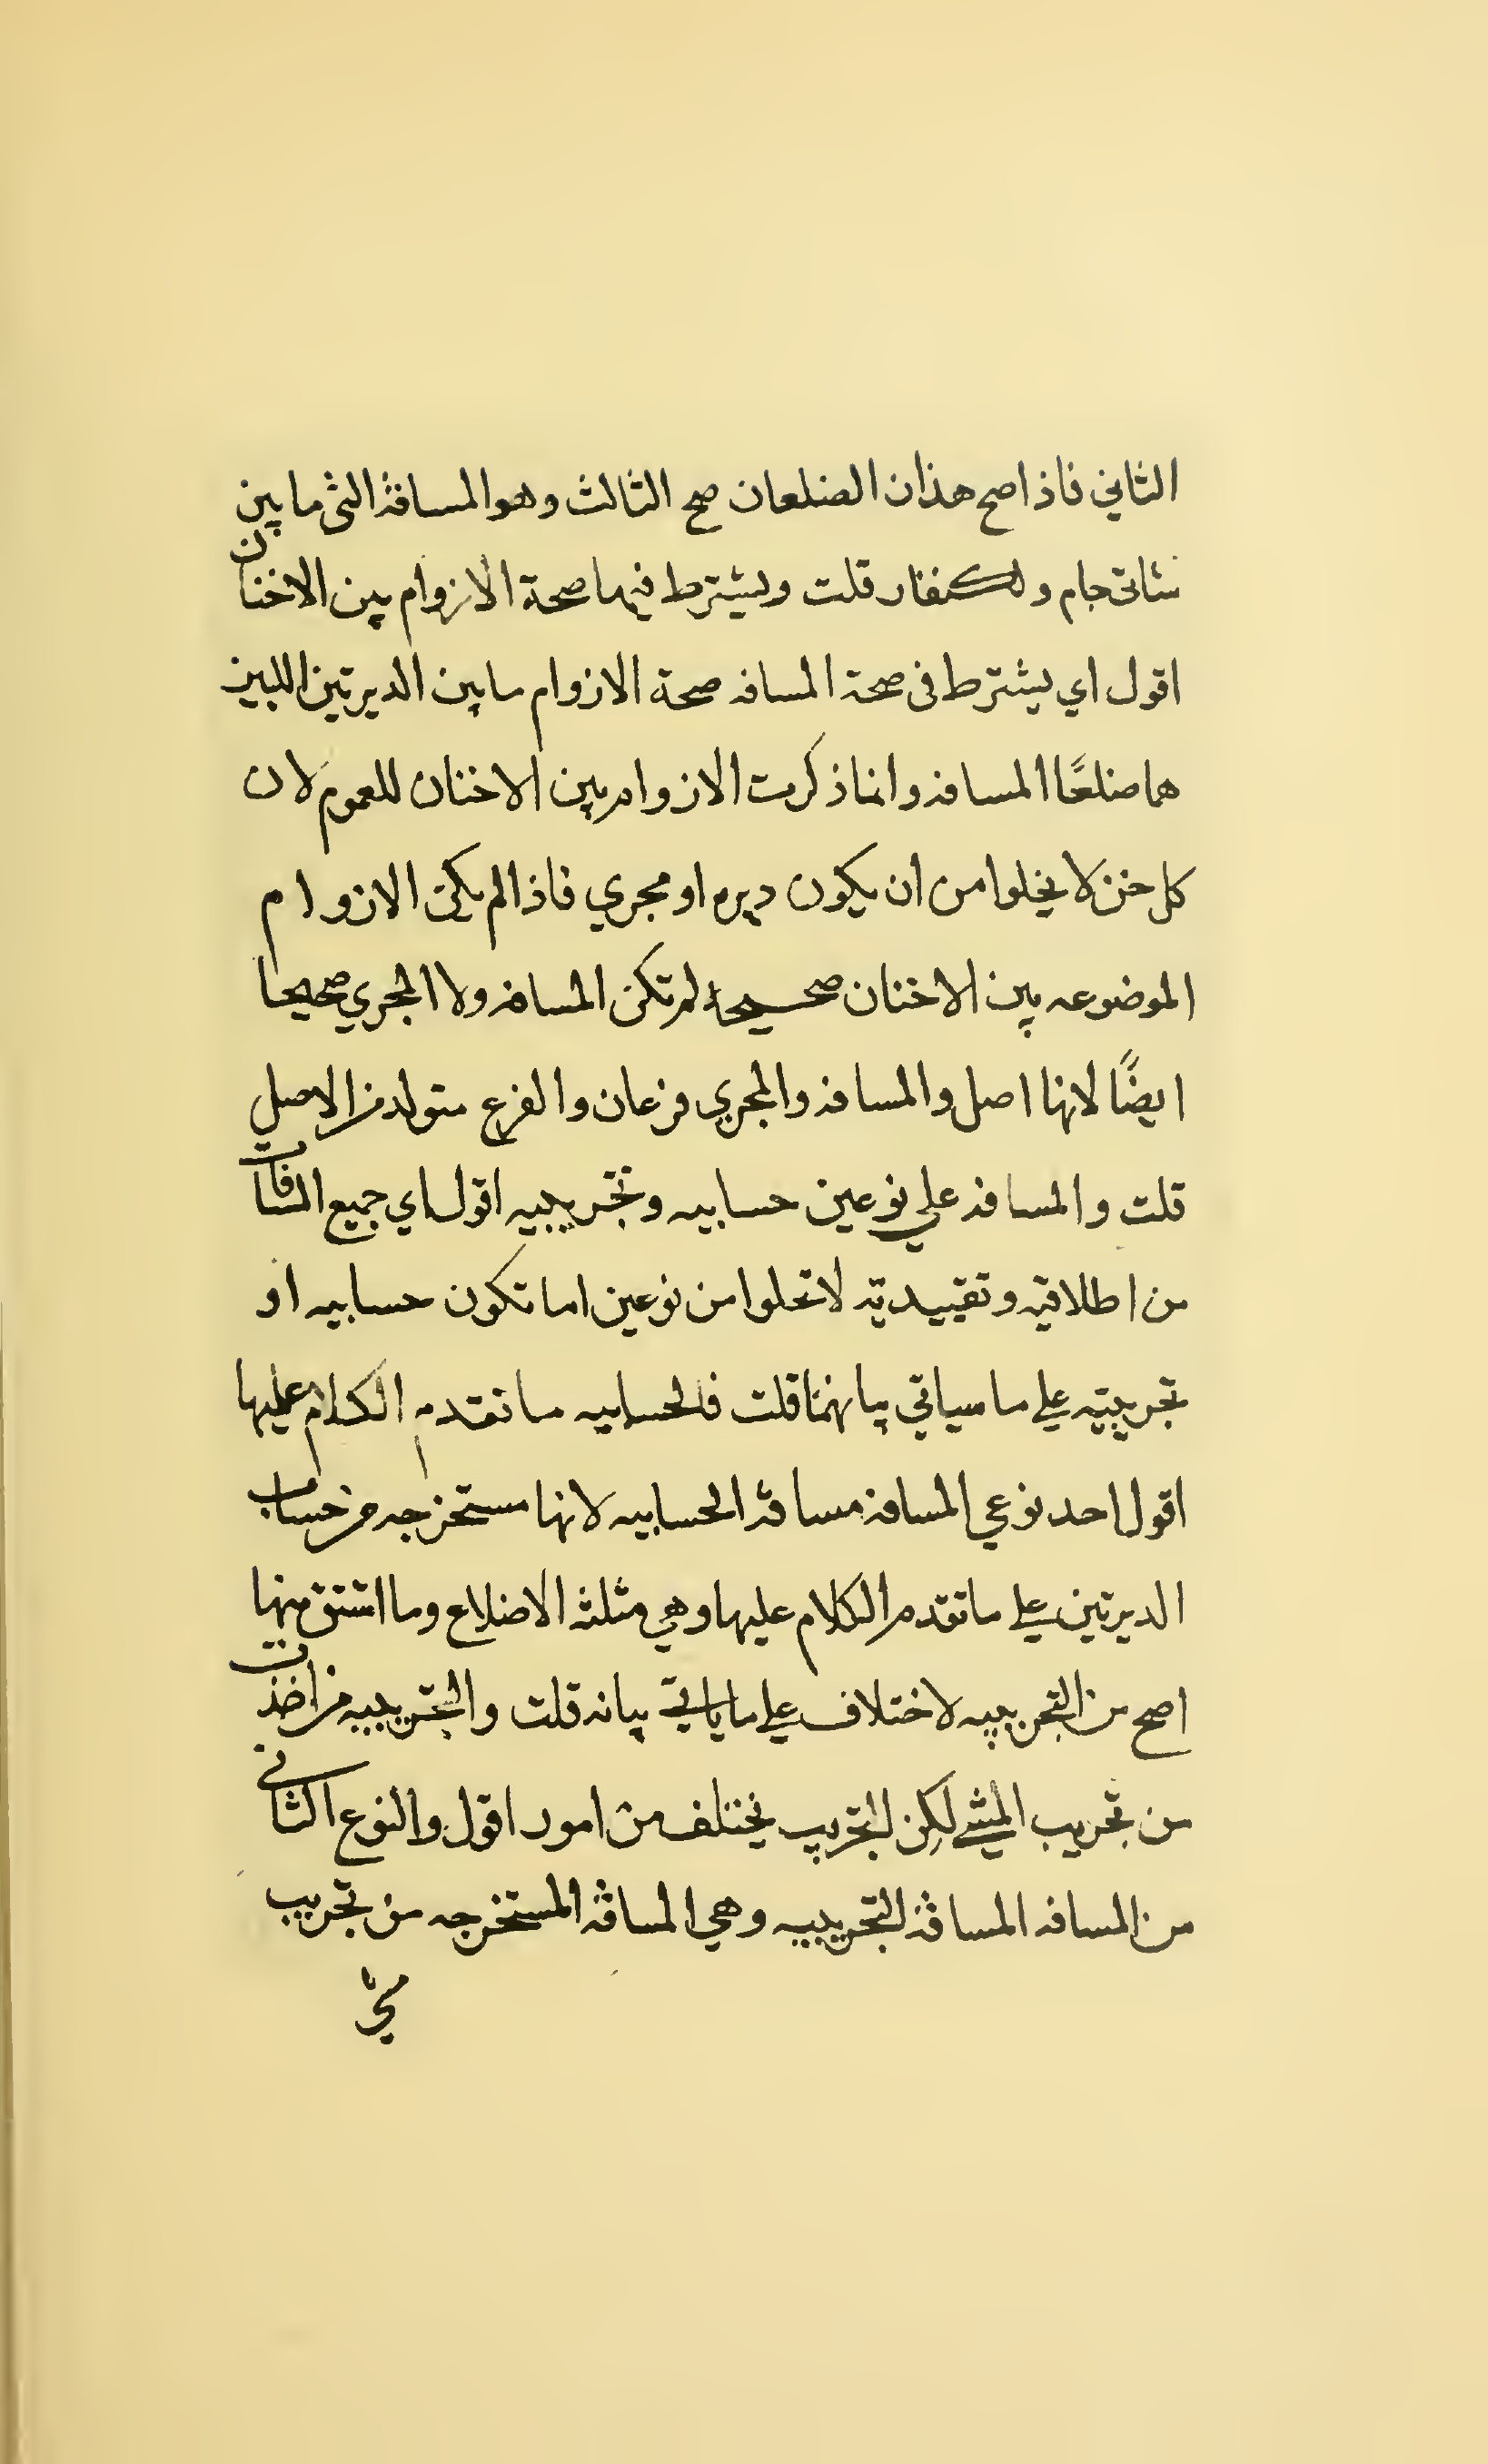 الثاني فاذا صح هذان الضلعان صح الثالث وهو المسافة التى ما بين
شاتى جام ولكنفار قلت ويشترط فيها صحة الازوام بين الاخنان
اقول اي يشترط فى صحة المسافه صحة الازوام ما بين الديرتين اللتين
هما ضلعًا المسافه وانما ذكرت الازوام بين الاخنان للعموم لان
كل خن لا يخلوا من ان يكون ديره او مجري فاذا لم يكن الازوام
الموضوعه بين الاخنان صحيحة لم تكن المسافه ولا المجري صحيحا
ايضًا لانها اصل والمسافه والمجري فرعان والفرع متولد من الاصل
قلت والمسافه علي نوعين حسابيه وتجريبيه اقول اي جميع المسافات
من اطلاقيه وتقييديّه لا تخلوا من نوعين اما تكون حسابيه او
تجريبيّه علي ما سياتي بيانهما قلت فالحسابيه ما تقدم الكلام عليها
اقول احد نوعي المسافه مسافة الحسابيه لانها مستخرجه من حساب
الديرتين علي ما تقدم الكلام عليها وهي مثلثه الاضلاع وما اشتق منها
اصح من التجريبيه لاختلاف علي ما ياتي بيانه قلت والتجريبيه من اخذت
من تجريب المشي لكن التجريب يختلف من امور اقول والنوع الثاني
من المسافه المسافة التجريبيه وهي المسافة المستخرجه من تجريب